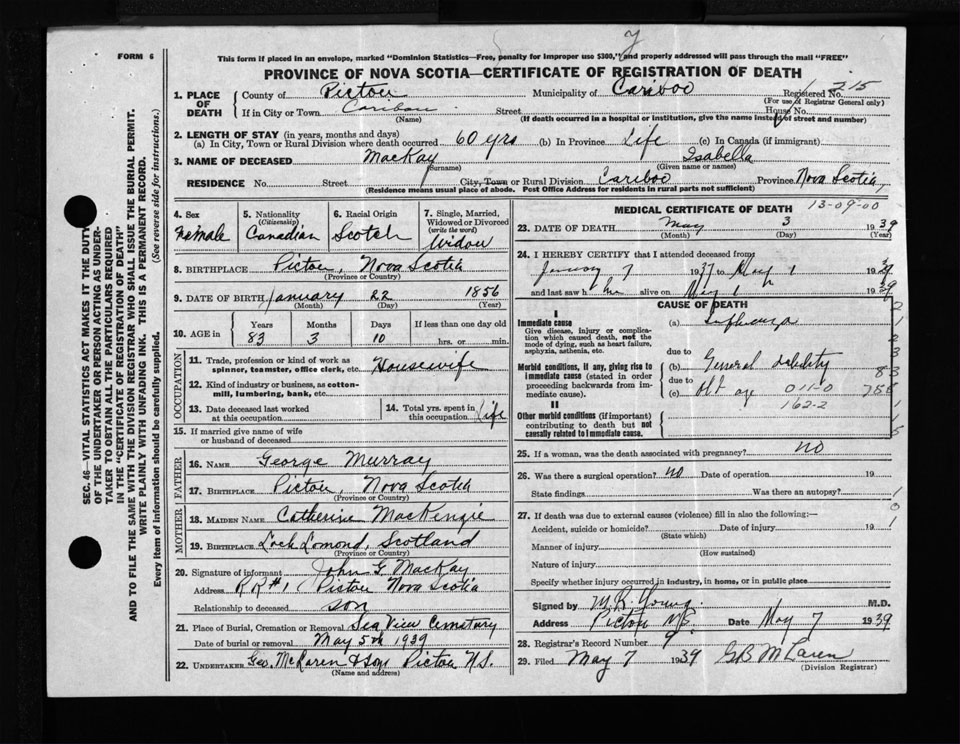 FORM 6
This form if placed in an envelope, marked "Dominion Statistics—Free, penalty for improper use $300," and properly addressed will pass through the mail "FREE"
PROVINCE OF NOVA SCOTIA—CERTIFICATE OF REGISTRATION OF DEATH
1. PLACE OF DEATH
County of Pictou Municipality of Cariboo Registered No. 215
(For use of Registrar General only)
If in City or Town Caribou Street House No.
(Name) (If death occurred in a hospital or institution, give the name instead of street and number)
2. LENGTH OF STAY (in years, months and days)
(a) In City, Town or Rural Division where death occurred 60 yrs (b) In Province Life (c) In Canada (if immigrant)
3. NAME OF DECEASED MacKay Isabella
(Surname) (Given name or names)
RESIDENCE No. Street City, Town or Rural Division Cariboo Province Nova Scotia
(Residence means usual place of abode. Post Office Address for residents in rural parts not sufficient)
13-09-00
4. Sex Female
5. Nationality (Citizenship) Canadian
6. Racial Origin Scotch
7. Single, Married, Widowed or Divorced (write the word) Widow
8. BIRTHPLACE Pictou, Nova Scotia
(Province or Country)
9. DATE OF BIRTH January 22 1856
(Month) (Day) (Year)
10. AGE in Years Months Days If less than one day old
83 3 10 hrs. or min.
OCCUPATION
11. Trade, profession or kind of work as spinner, teamster, office clerk, etc. Housewife
12. Kind of industry or business, as cotton-mill, lumbering, bank, etc.
13. Date deceased last worked at this occupation
14. Total yrs. spent in this occupation Life
15. If married give name of wife or husband of deceased
FATHER
16. NAME George Murray
17. BIRTHPLACE Pictou, Nova Scotia
(Province or Country)
MOTHER
18. MAIDEN NAME Catherine MacKenzie
19. BIRTHPLACE Loch Lomond, Scotland
(Province or Country)
20. Signature of informant John G MacKay
Address RR#1 Pictou Nova Scotia
Relationship to deceased son
21. Place of Burial, Cremation or Removal Sea View Cematary
Date of burial or removal May 5th 1939
22. UNDERTAKER Geo. McLaren & Son Pictou N.S.
(Name and address)
MEDICAL CERTIFICATE OF DEATH
23. DATE OF DEATH May 3 1939
(Month) (Day) (Year)
24. I HEREBY CERTIFY that I attended deceased from
January 7 1937 to May 1 1939
and last saw her alive on May 1 1939
CAUSE OF DEATH
I
Immediate cause
Give disease, injury or complication which caused death, not the mode of dying, such as heart failure, asphyxia, asthenia, etc.
(a) Influenza
due to
Morbid conditions, if any, giving rise to immediate cause (stated in order proceeding backwards from immediate cause).
(b) General debility
due to
(c) Old age 011-0
162-2
II
Other morbid conditions (if important) contributing to death but not causally related to immediate cause.
25. If a woman, was the death associated with pregnancy? NO
26. Was there a surgical operation? NO Date of operation 19
State findings Was there an autopsy?
27. If death was due to external causes (violence) fill in also the following:—
Accident, suicide or homicide? Date of injury 19
(State which)
Manner of injury
(How sustained)
Nature of injury
Specify whether injury occurred in industry, in home, or in public place
Signed by M.R. Young M.D.
Address Pictou N.S. Date May 7 1939
28. Registrar's Record Number 9
29. Filed May 7 1939 G B McLaren
(Division Registrar)
SEC. 46—VITAL STATISTICS ACT MAKES IT THE DUTY
OF THE UNDERTAKER OR PERSON ACTING AS UNDER-
TAKER TO OBTAIN ALL THE PARTICULARS REQUIRED
IN THE "CERTIFICATE OF REGISTRATION OF DEATH"
AND TO FILE THE SAME WITH THE DIVISION REGISTRAR WHO SHALL ISSUE THE BURIAL PERMIT.
WRITE PLAINLY WITH UNFADING INK. THIS IS A PERMANENT RECORD.
Every item of information should be carefully supplied. (See reverse side for instructions.)